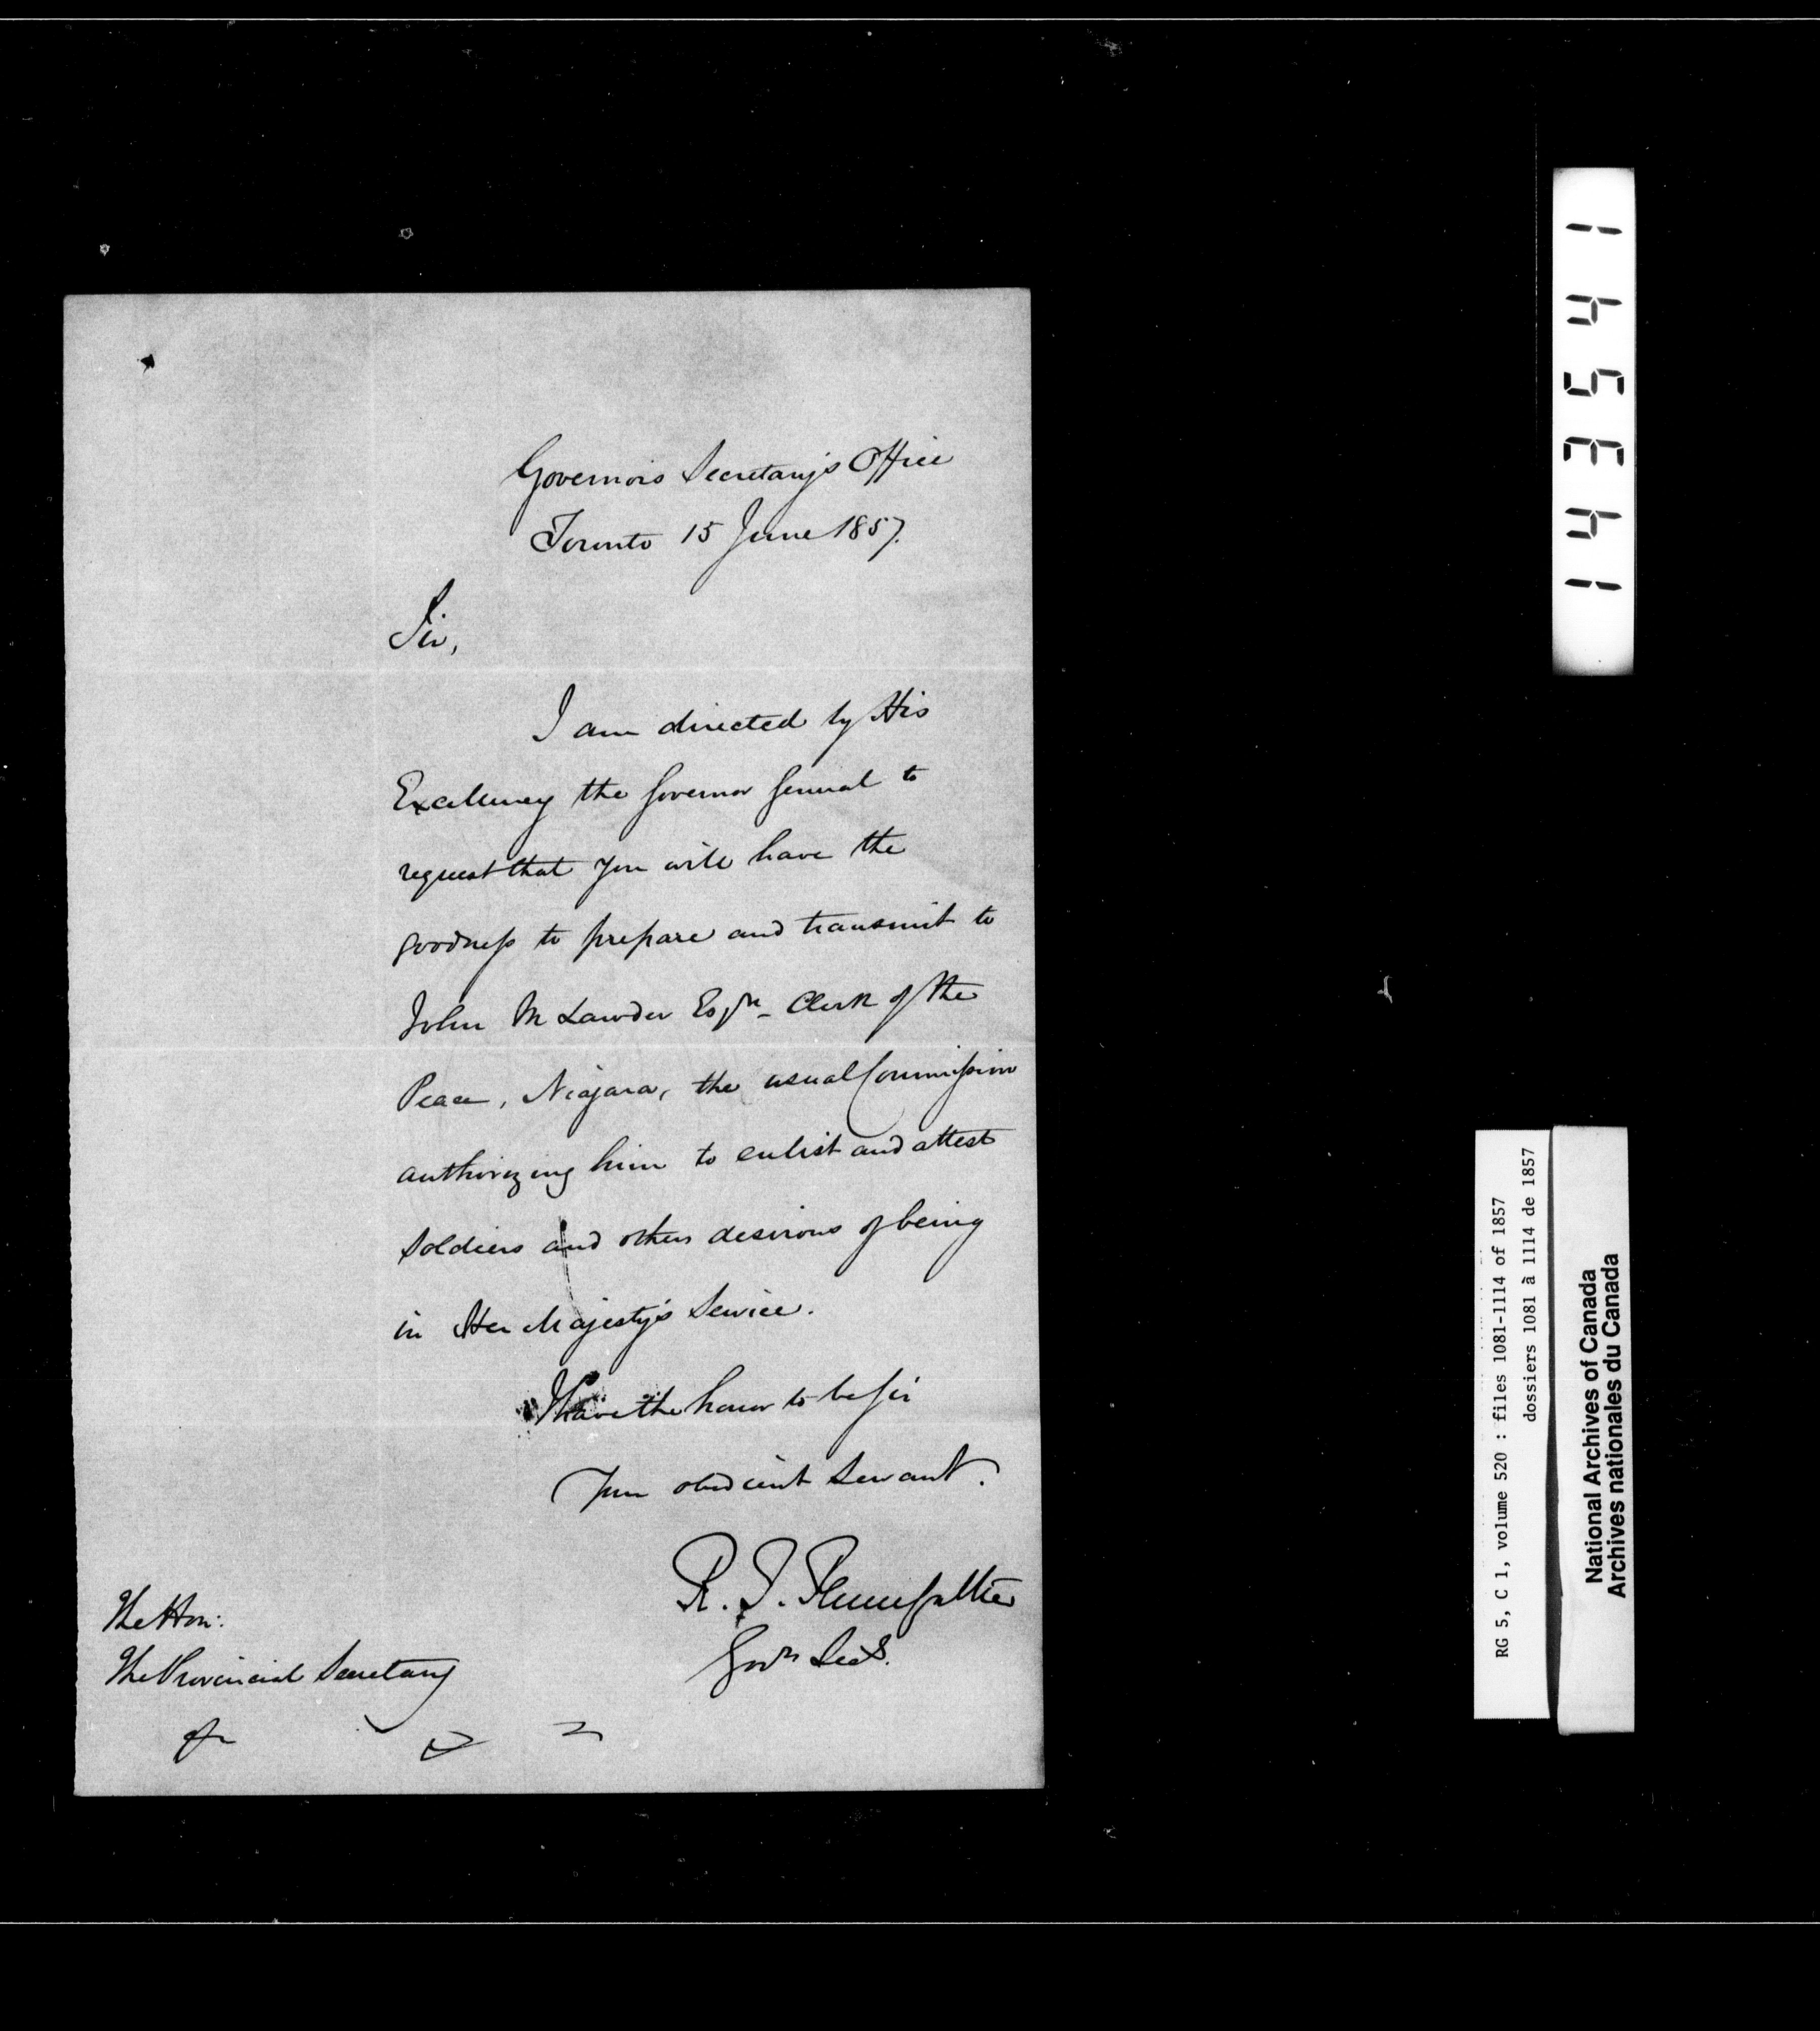 Governor's Secretary's Office
Toronto 15 June 1857.
Sir,
I am directed by His
Excellency the Governor General to
request that you will have the
goodness to prepare and transmit to
John M Lawder Esqre. Clerk of the
Peace, Niagara, the usual Commission
authorizing him to enlist and attest
soldiers and others desirous of being
in Her Majesty's Service.
I have the honor to be Sir
Your obedient Servant.
R. T. Pennefather
Govr Secy.
The Hon:
The Provincial Secretary
143541
RG 5, C 1, volume 520 : files 1081-1114 of 1857
dossiers 1081 à 1114 de 1857
National Archives of Canada
Archives nationales du Canada